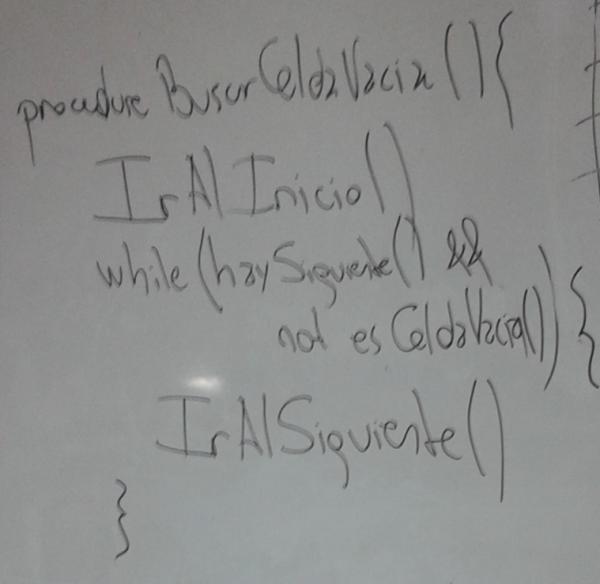 procedure BuscarCeldaVacia(){
IrAlInicio()
while(haySiguiente() &&
not esCeldaVacia()){
IrAlSiguiente()
}